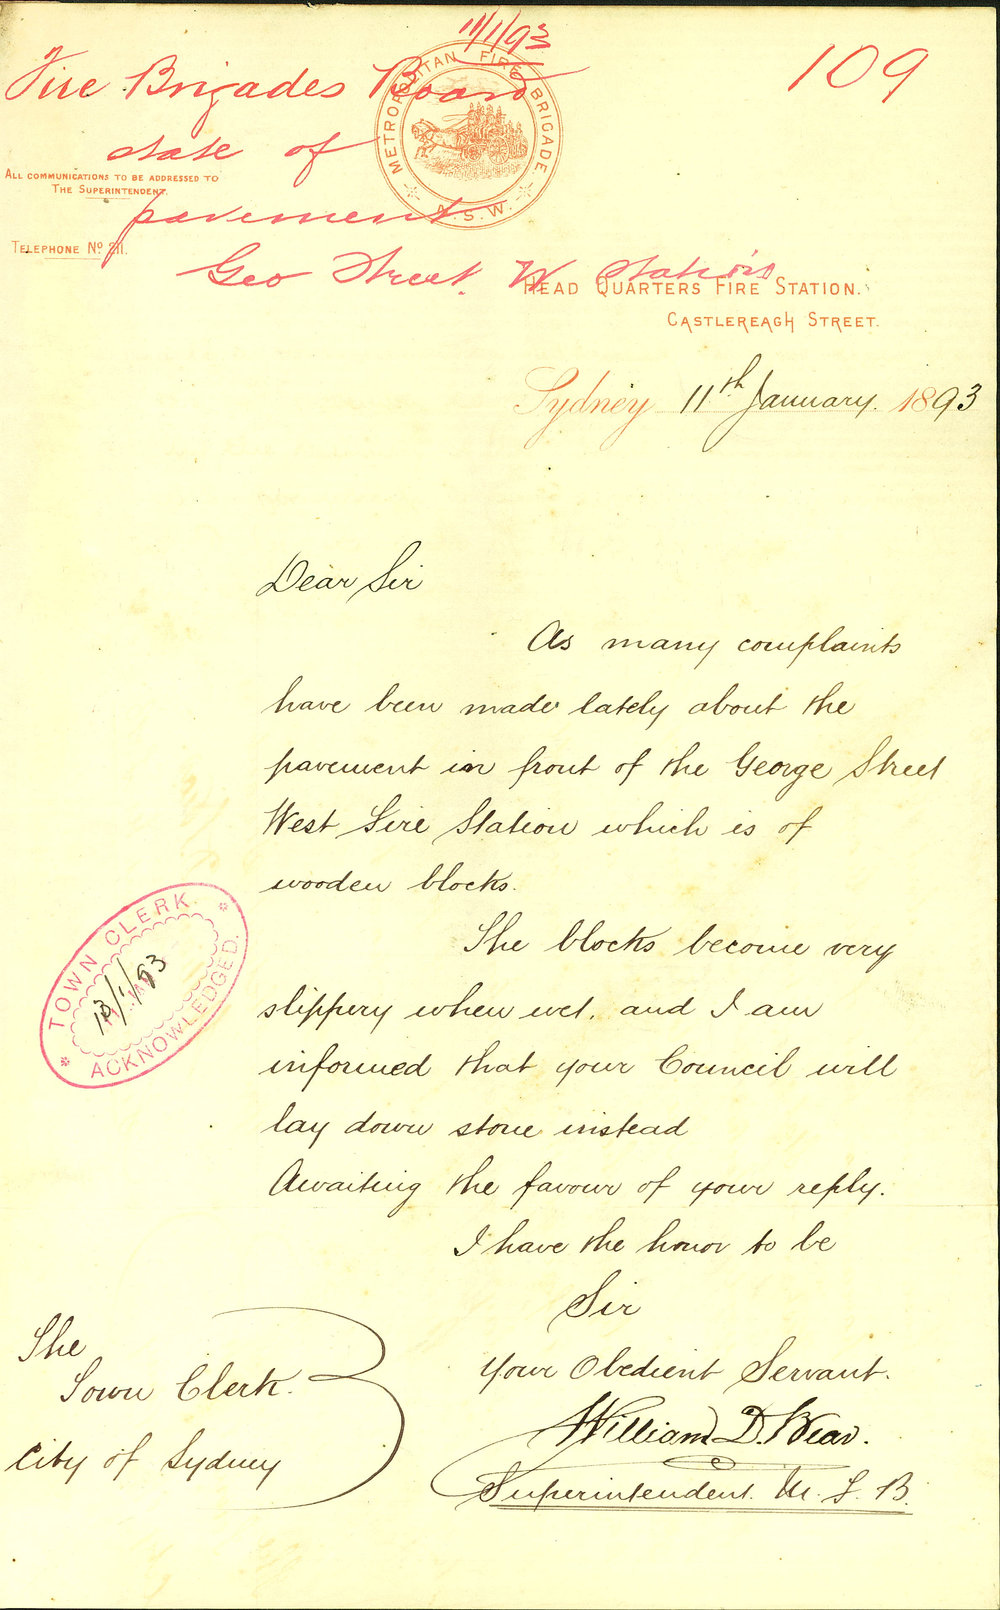 11/1/93
109
Fire Brigades Board
state of
pavement
Geo Street W Station
METROPOLITAN FIRE BRIGADE
N.S.W.
ALL COMMUNICATIONS TO BE ADDRESSED TO
THE SUPERINTENDENT.
TELEPHONE No 211.
HEAD QUARTERS FIRE STATION.
CASTLEREAGH STREET.
Sydney 11th January. 1893
Dear Sir
As many complaints
have been made lately about the
pavement in front of the George Street
West Fire Station which is of
wooden blocks.
The blocks become very
slippery when wet, and I am
informed that your Council will
lay down stone instead
Awaiting the favour of your reply.
I have the honor to be
Sir
Your Obedient Servant.
William D. Bear.
Superintendent. M. F. B.
The
Town Clerk.
City of Sydney
TOWN CLERK.
13/1/93
ACKNOWLEDGED.